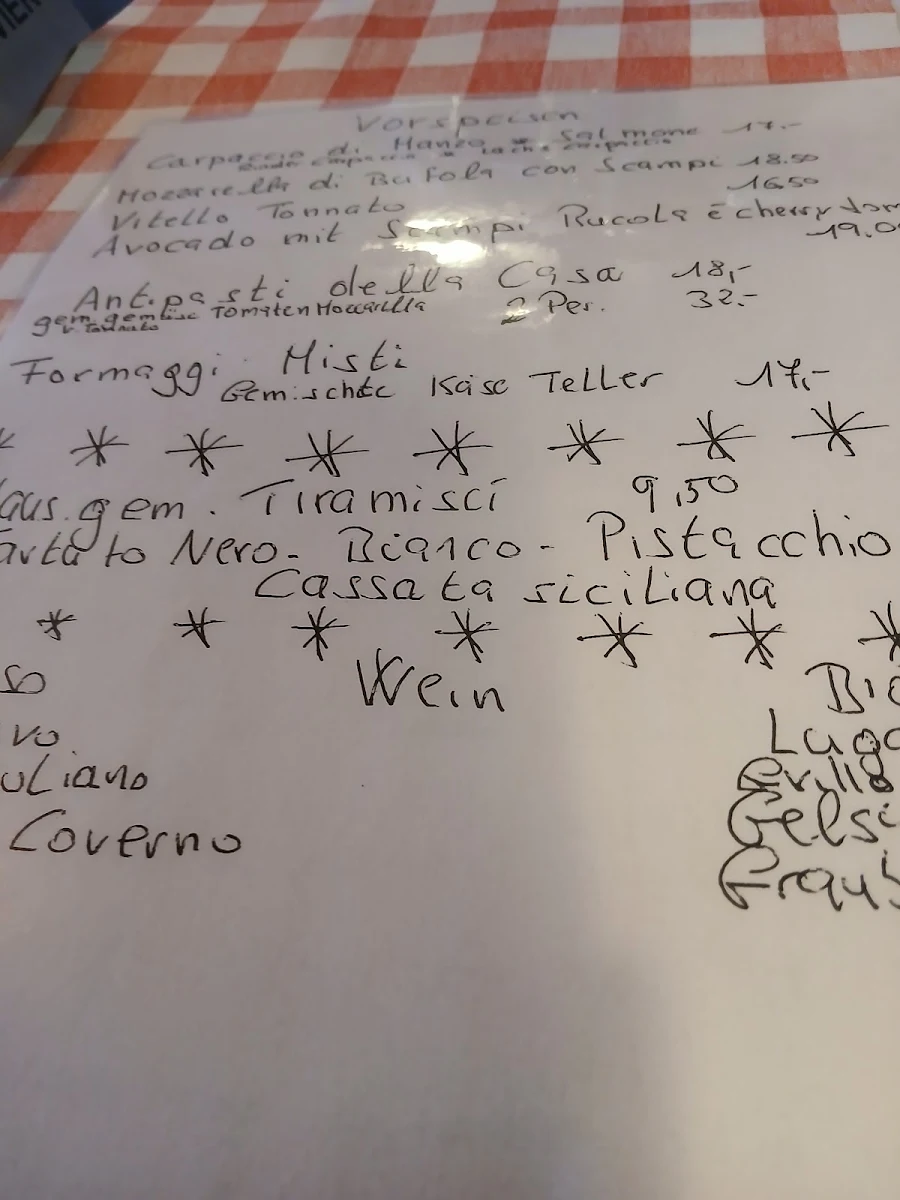 Vorspeisen
Carpaccio di Manzo * Salmone 17.-
Mozzarella di Bufola con Scampi 18.50
Vitello Tonnato 16.50
Avocado mit Scampi Rucola e cherry tom
19.0
Antipasti della Casa 18,-
gem. gemüse Tomaten Moccarella 2 Per. 32.-
V. Tonnato
Formaggi Misti
Gemischte Käse Teller 17,-
aus.gem. Tiramisci 9,50
artu to Nero- Bianco- Pistacchio
Cassata siciliana
so Wein Bia
vo Luga
uliano Grillo
Coverno Gelsi